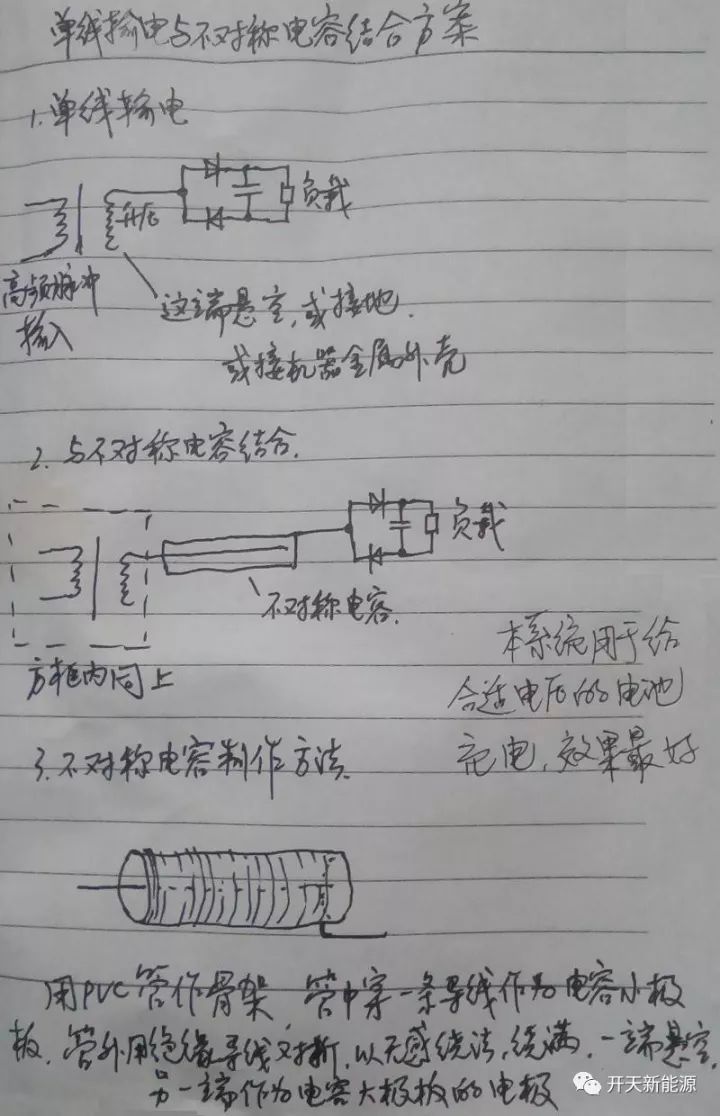 单线输电与不对称电容结合方案
1.单线输电
升压
负载
高频脉冲
输入
这端悬空,或接地.
或接机器金属外壳
2.与不对称电容结合.
负载
不对称电容.
方框内同上
本系统用于给
合适电压的电池
充电,效果最好
3.不对称电容制作方法.
用PVC管作骨架,管中穿一条导线作为电容小极
板,管外用绝缘导线对折,以无感绕法,绕满,一端悬空,
另一端作为电容大极板的电极
开天新能源